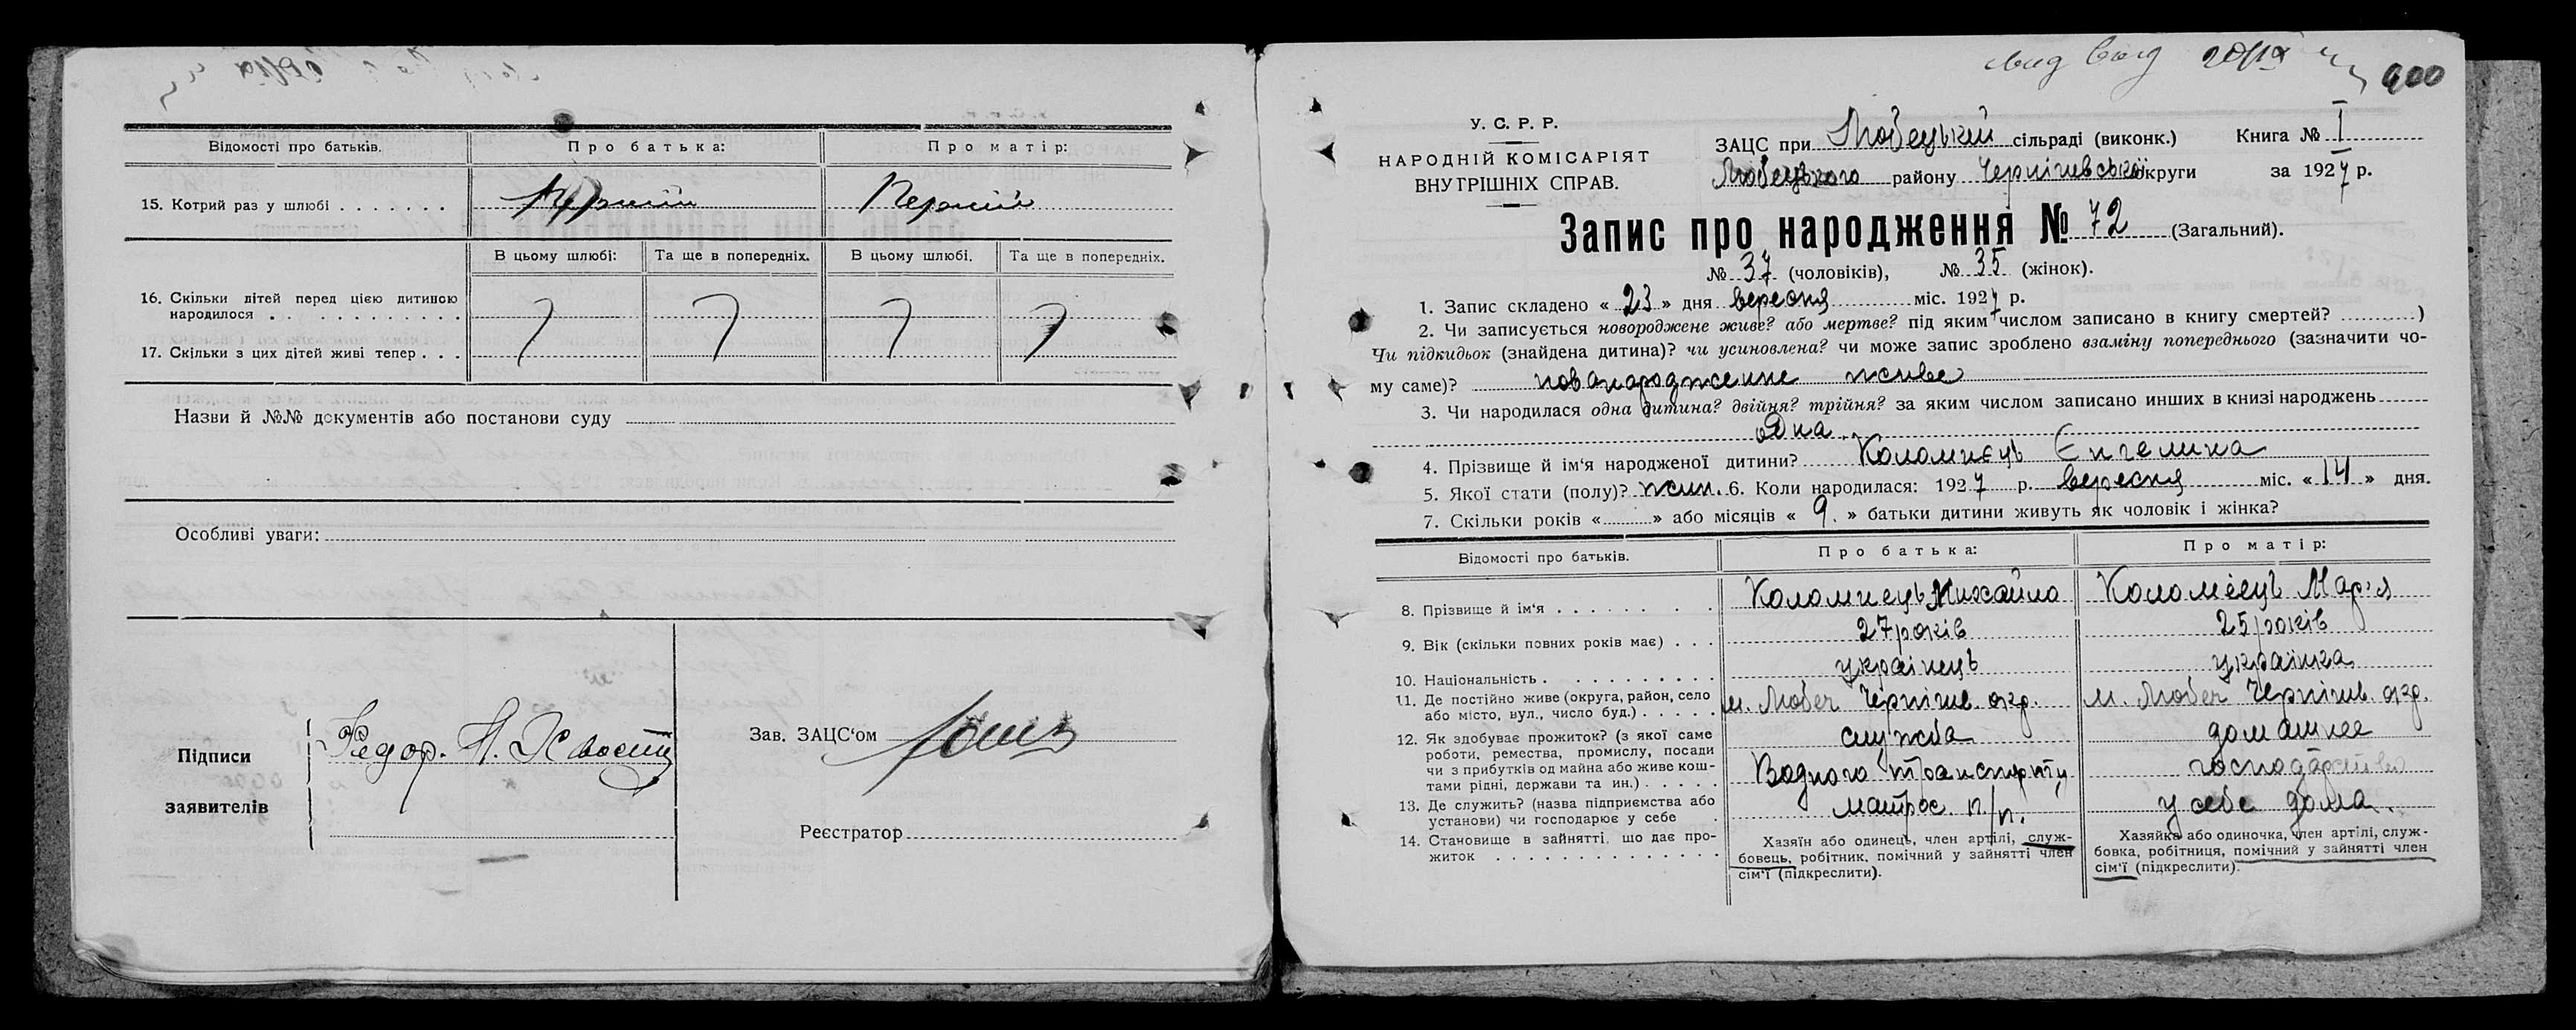 Відомості про батьків.
Про батька:
Про матір:
15. Котрий раз у шлюбі
Перший
Перший
В цьому шлюбі:
Та ще в попередніх.
В цьому шлюбі.
Та ще в попередніх.
16. Скільки дітей перед цією дитиною
народилося
17. Скільки з цих дітей живі тепер
Назви й №№ документів або постанови суду
Особливі уваги:
Підписи
заявителів
Зав. ЗАЦС‘ом
Реєстратор
900
У. С. Р. Р.
НАРОДНІЙ КОМІСАРІЯТ
ВНУТРІШНІХ СПРАВ.
ЗАЦС при Любецькій сільраді (виконк.)
Книга № I
Любецького району Чернігівської округи
за 1927 р.
Запис про народження № 72 (Загальний).
№ 37 (чоловіків), № 35 (жінок).
1. Запис складено « 23 » дня вересня міс. 1927 р.
2. Чи записується новороджене живе? або мертве? під яким числом записано в книгу смертей? )
Чи підкидьок (знайдена дитина)? чи усиновлена? чи може запис зроблено взаміну попереднього (зазначити чо-
му саме)? новонародженне живе
3. Чи народилася одна дитина? двійня? трійня? за яким числом записано инших в книзі народжень
одна
4. Прізвище й ім‘я народженої дитини? Коломиєць Єнгелина
5. Якої стати (полу)? жин. 6. Коли народилася: 1927 р. вересня міс. « 14 » дня.
7. Скільки років « » або місяців « 9. » батьки дитини живуть як чоловік і жінка?
Відомості про батьків.
Про батька:
Про матір:
8. Прізвище й ім‘я
Коломиець Михайло
Коломеець Мар'я
9. Вік (скільки повних років має)
27 років
25 років
10. Національність
українець
українка
11. Де постійно живе (округа, район, село
або місто, вул., число буд.)
м. Любеч Черніг. окр.
м. Любеч Черніг. окр.
12. Як здобуває прожиток? (з якої саме
роботи, ремества, промислу, посади
чи з прибутків од майна або живе кош-
тами рідні, держави та ин.)
служба
домашнее
Водного транспорту
господарство
13. Де служить? (назва підприємства або
установи) чи господарює у себе
матрос п/п.
у себе дома.
14. Становище в зайнятті, що дає про-
житок
Хазяїн або одинець, член артілі, служ-
бовець, робітник, помічний у зайнятті член
сім‘ї (підкреслити).
Хазяйка або одиночка, член артілі, служ-
бовка, робітниця, помічний у зайнятті член
сім‘ї (підкреслити).